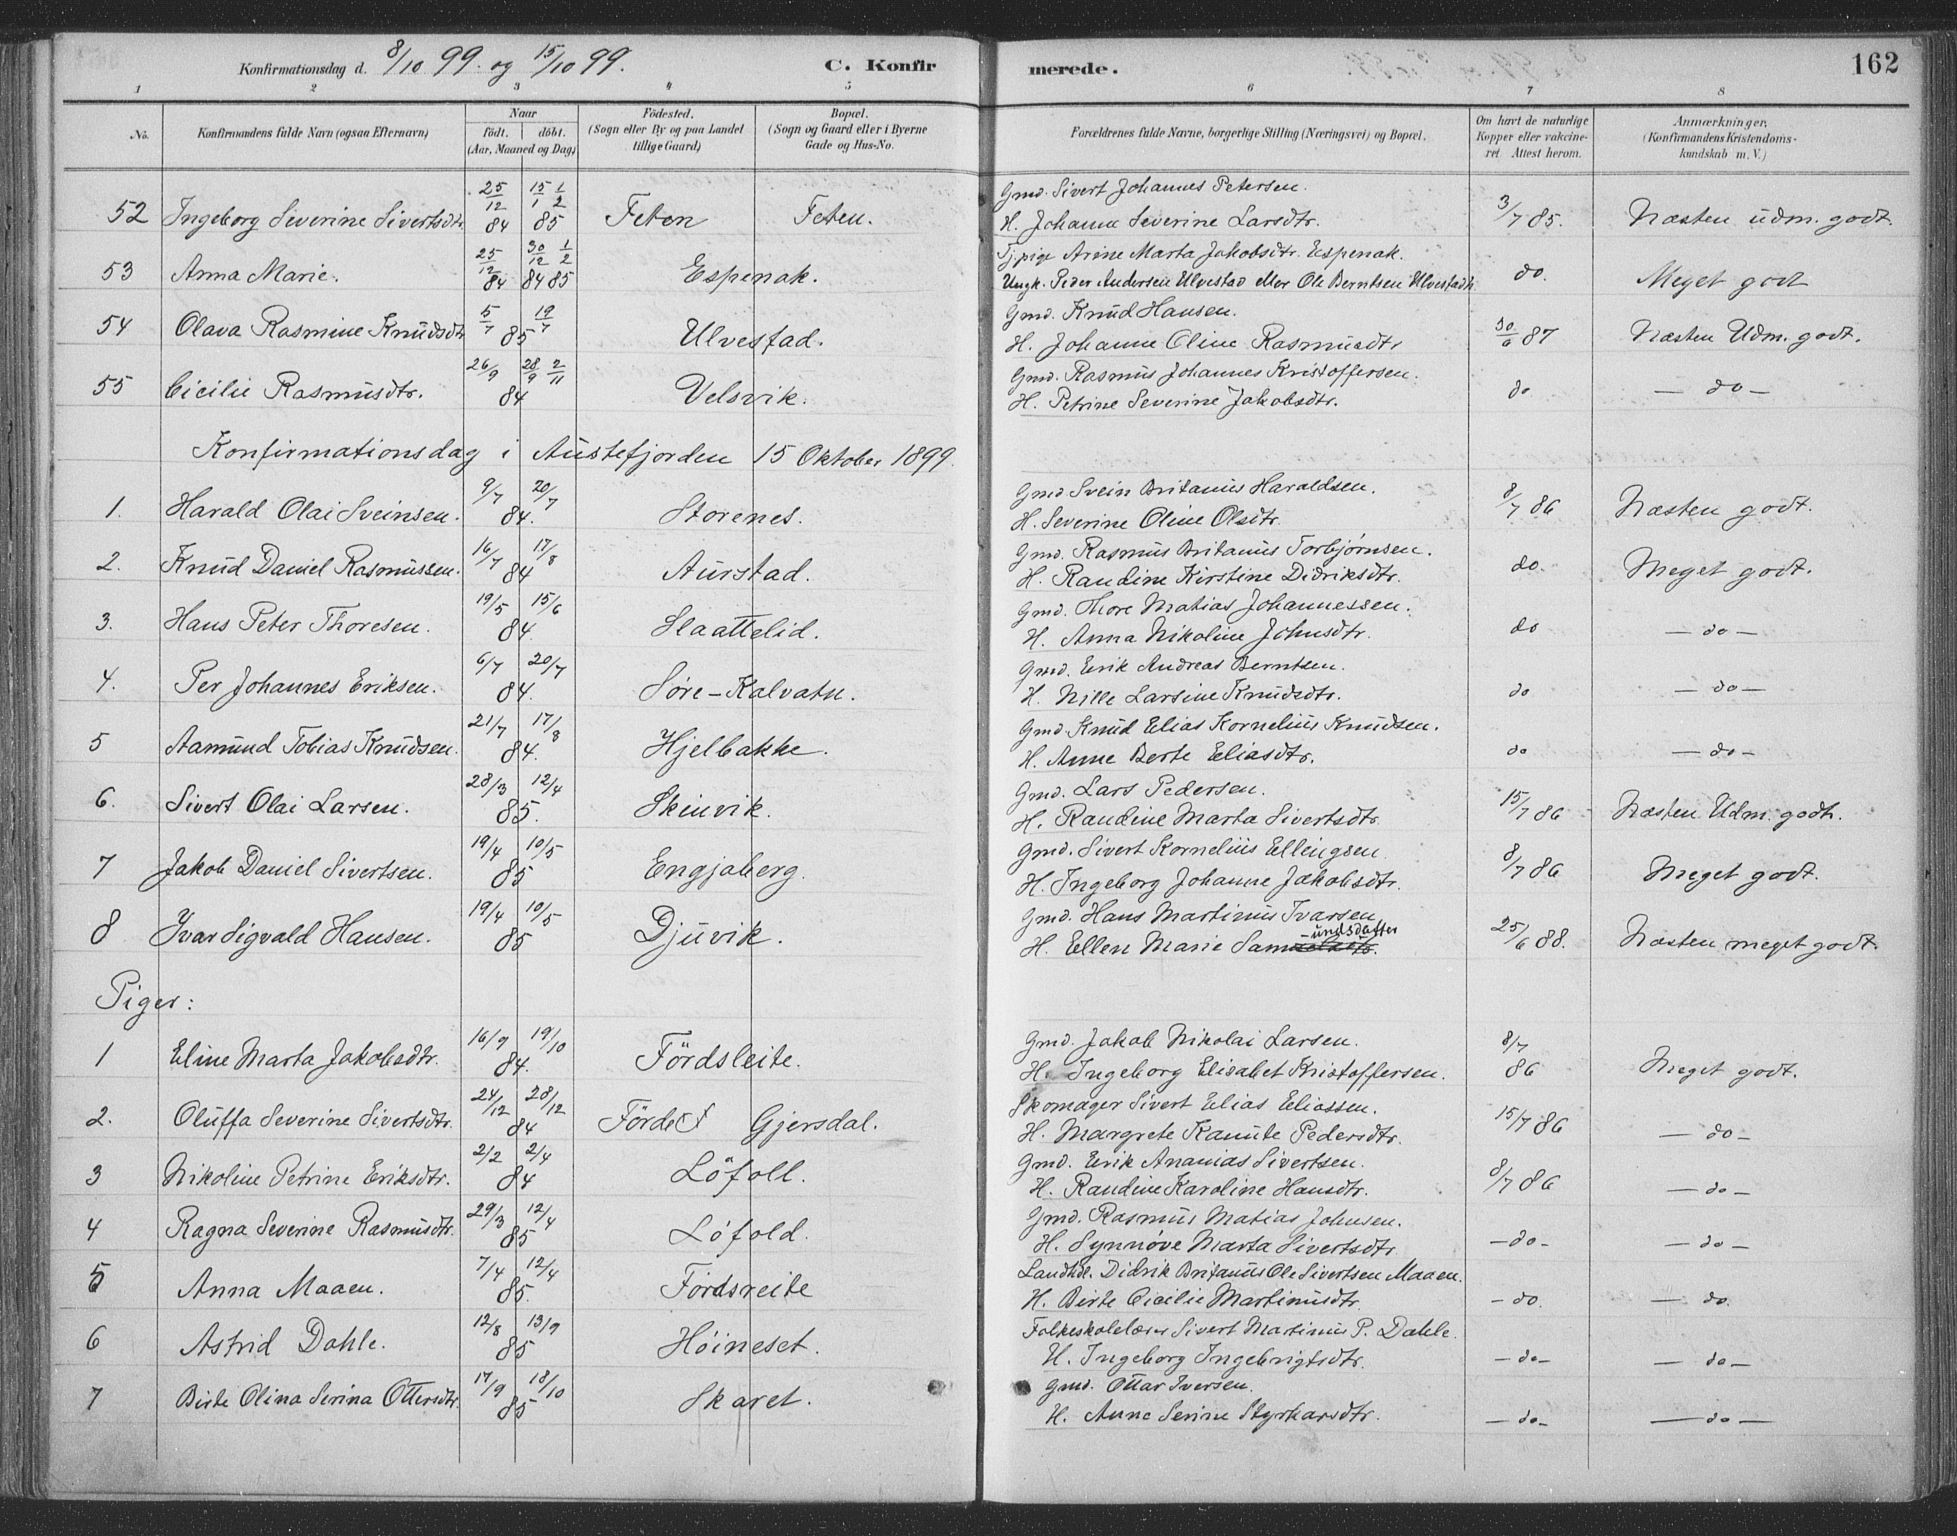 Konfirmationsdag d. 8/10 99. og 15/10 99. C. Konfir merede. 162
1 2 3 4 5 6 7 8
No. Konfirmandens fulde Navn (ogsaa Efternavn) Naar født. døbt. (Aar, Maaned og Dag) Födested. (Sogn eller By og paa Landet tillige Gaard) Bopæl. (Sogn og Gaard eller i Byerne Gade og Hus-No. Forældrenes fulde Navne, borgerlige Stilling (Næringsvei) og Bopæl. Om havt de naturlige Kopper eller vakcineret Attest herom. Anmærkninger. (Konfirmandens Kristendomskundskab m. V.)
Gmd. Sivert Johannes Petersen.
52 Ingeborg Severine Sivertsdtr. 25/12 84 15/1 1/2 85 Feten Feten. H. Johanne Severine Larsdtr. 3/7 85. Næsten udm. godt.
Tj.pige Arine Marta Jakobsdtr. Espenak.
53 Anna Marie. 25/12 84 30/12 1/2 84 85 Espenak. Ungk. Peder Andersen Ulvestad eller Ole Berntsen Ulvestad do. Meget godt
Gmd. Knud Hansen.
54 Olava Rasmine Knudsdtr 5/7 19/7 85 Ulvestad. H. Johanne Oline Rasmusdtr 30/6 87 Næsten Udm. godt.
Gmd. Rasmus Johannes Kristoffersen.
55 Cicilie Rasmusdtr. 26/9 28/9 2/11 84 Velsvik. H. Petrine Severine Jakobsdtr. do — do —
Konfirmationsdag i Austefjorden 15 Oktober 1899.
Gmd Svein Britanus Haraldsen.
1. Harald Olai Sveinsen. 9/7 20/7 84. Storenes. H. Severine Oline Olsdtr. 8/7 86 Næsten godt.
Gmd. Rasmus Britanus Torbjørnsen.
2. Knud Daniel Rasmussen. 16/7 17/8 84 Aurstad. H. Raudine Kirstine Didriksdtr. do. Meget godt.
Gmd. Thore Matias Johannessen.
3. Hans Peter Thoresen. 19/5 15/6 84. Slaattelid. H. Anna Nikoline Johnsdtr. do — do —
Gmd. Erik Andreas Berntsen.
4. Per Johannes Eriksen. 6/7 20/7 84. Søre-Kalvatn. H. Nille Larsine Knudsdtr. do — do —
Gmd. Knud Elias Kornelius Knudsen.
5 Aamund Tobias Knudsen. 21/7 17/8 84. Hjelbakke. H. Anne Berte Eliasdtr. do — do —
Gmd. Lars Pedersen.
6. Sivert Olai Larsen. 28/3 12/4 85. Skinvik. H. Raudine Marta Sivertsdtr. 15/7 86 Næsten Udm. godt.
Gmd. Sivert Kornelius Ellingsen
7 Jakob Daniel Sivertsen. 19/4 10/5 85 Engjaberg. H. Ingeborg Johanne Jakobsdtr. 8/7 86 Meget godt.
Gmd. Hans Martinus Ivarsen
8 Ivar Sigvald Hansen. 19/4 10/5 85 Djuvik. H. Ellen Marie Samuelsdtr. -undsdatter 25/6 88. Næsten meget godt.
Piger:
Gmd. Jakob Nikolai Larsen.
1 Eline Marta Jakobsdtr. 16/9 19/10 84. Fördsleite. H. Ingeborg Elisabet Kristoffersen. 8/7 86 Meget godt.
Skomager Sivert Elias Eliassen.
2. Oluffa Severine Sivertsdtr. 24/12 28/12 84 Förde Gjersdal. H. Margrete Kamute Pedersdtr. 15/7 86 — do —
Gmd. Erik Ananias Sivertsen.
3 Nikoline Petrine Eriksdtr. 2/2 2/4 84 Löfoll. H. Raudine Karoline Hansdtr. 8/7 86 — do —
Gmd. Rasmus Matias Johnsen.
4 Ragna Severine Rasmusdtr. 29/3 12/4 85 Løfold. H. Synnøve Marta Sivertsdtr — do — — do —
Landhdl. Didrik Britanus Ole Sivertsen Maaen.
5 Anna Maaen. 7/4 12/4 85. Fördsreite H. Birte Cicilie Martinusdtr. — do. — do.
Folkeskolelærer Sivert Martinus P. Dahle.
6 Astrid Dahle. 12/8 13/9 85 Høineset. H. Ingeborg Ingebrigtsdtr. — do — — do —
Gmd. Ottar Iversen.
7 Birte Olina Serina Ottersdtr. 17/9 18/10 85 Skaret. H. Anne Serine Styrkarsdtr. — do — — do —